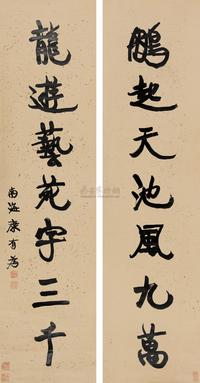 鵬起天池風九萬
龍遊藝苑字三千
南海康有為